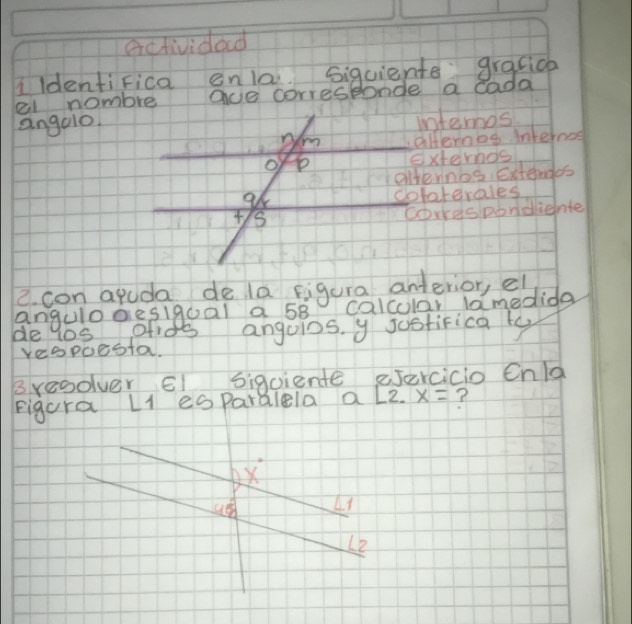 Actividad
1 Identifica en la siguiente grafica
el nombre que corresponde a cada
angulo.
internos
alternos internos
externos
alternos externos
colaterales
correspondiente
n m
o p
q r
t s
2. con ayuda de la figura anterior, el
angulo o es igual a 58 calcular la medida
de los otros angulos. y Justifica tu
respuesta.
3 resolver El siguiente ejercicio en la
Figura L1 es paralela a L2. x = ?
x°
L1
L2